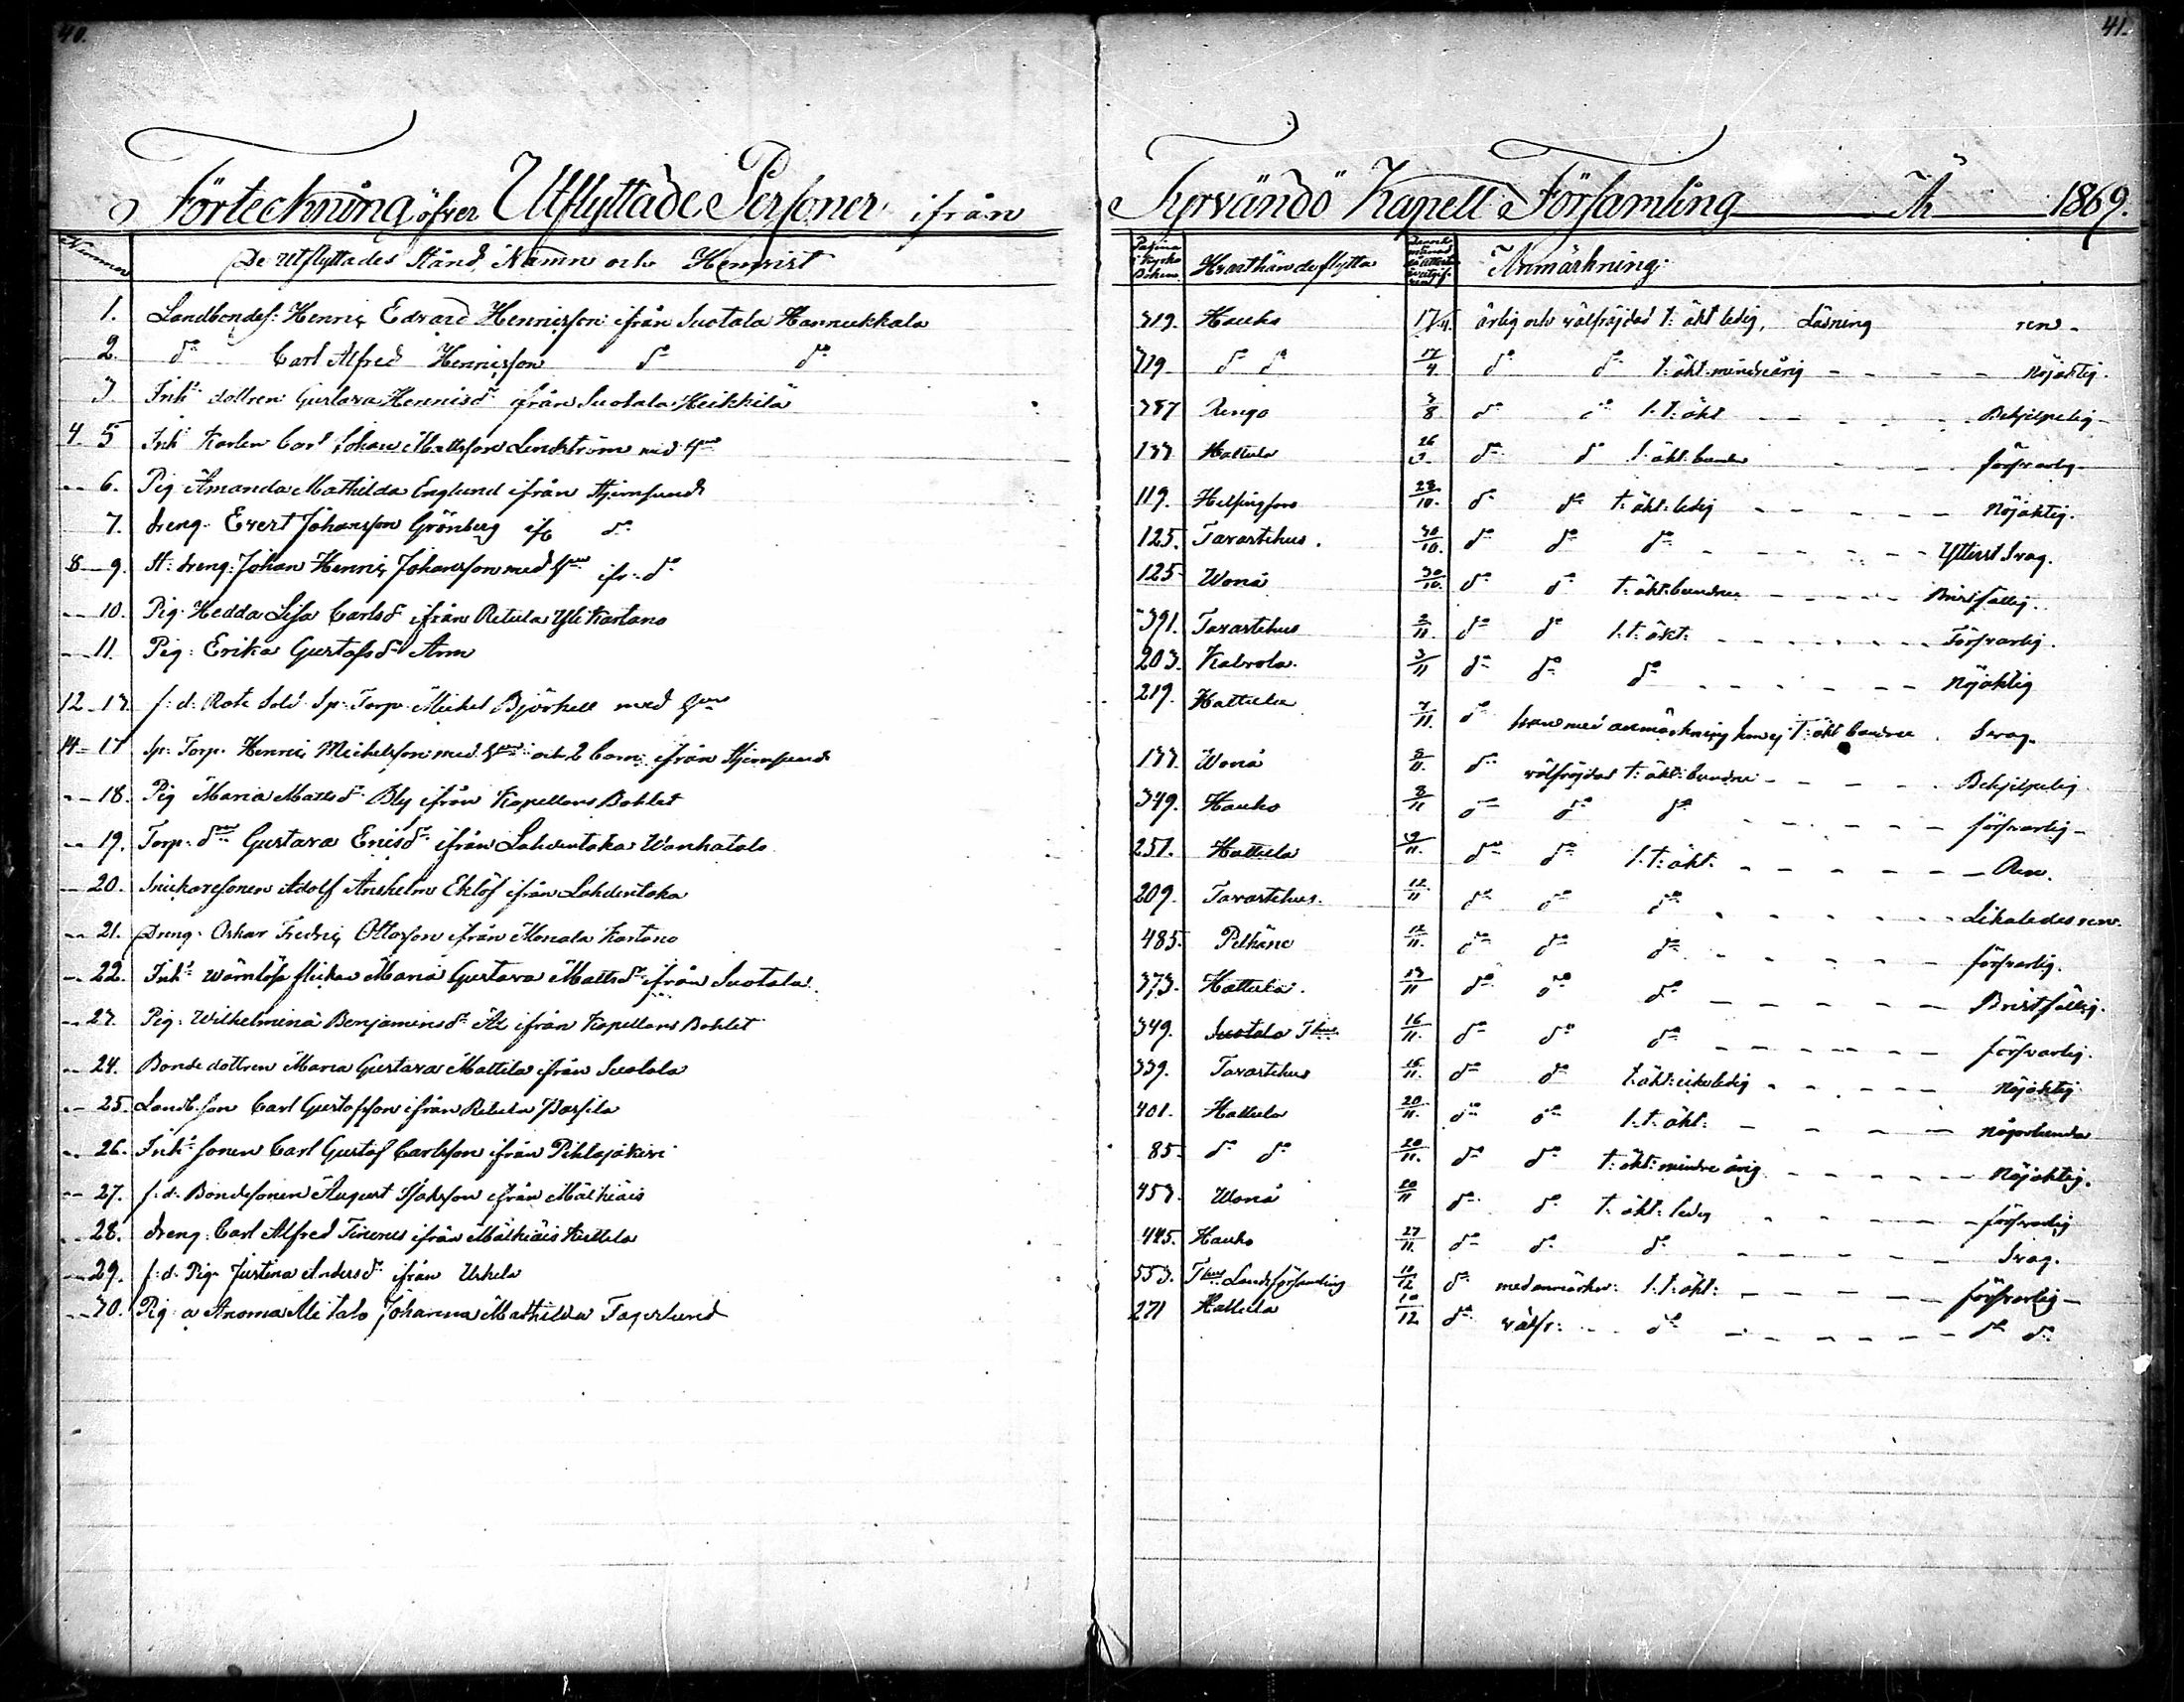 40.
41.
Förteckning öfver Utflyttade Personer ifrån Tyrvändö Kapell Församling År 1869.
Nummer De Utflyttades Stånd, Namn och Hemvist Pagina i Kyrko Boken Hvarthän de flytta Anmärkning:
1. Landbondes: Henric Edvard Henricsson ifrån Suotala Hannukkala 319. Hauho 17/4. ärlig och välfräjdad t: äkt ledig, Läsning ren
2. do Carl Alfred Henricsson do do 319 do do 17/4 do do t: äkt minderårig Nöjaktig.
3. Inhs dottren Gustava Henricsdr ifrån Suotala Heikkilä 387 Rengo 3/8 do do l. t: äkt Behjelpelig
4 5 Inhs Karlen Carl Johan Mattsson Lindström med hu 133 Hattula 26 do do t: äkt: bunden försvarlig
6. Pig Amanda Mathilda Englund ifrån Hjernsund 119. Helsingfors 28/10. do do t: äkt: ledig Nöjaktig.
7. dreng. Evert Johansson Grönberg if do 125. Tavastehus. 30/10. do do do Ytterst Svag.
8-9. St: dreng: Johan Henric Johansson med hu ifr: do 125 Wonå 30/10. do do t: äkt: bundne Bristfällig.
10. Pig. Hedda Lisa Carlsdr ifrån Retula Yli Kartano 391. Tavastehus 2/11. do do l: t: äkt: Försvarlig.
11. Pig: Erika Gustafsdr Arm 203. Kalvola. 3/11 do do do Nöjaktig
12-13. f: d: Rote Sold Sp: Torp Mickel Björkell med hu 219. Hattula 7/11. do han med anmärkning hon ej t: äkt bundne Svag.
14-17 Sp: Torp. Henric Mickelsson med hu och 2 barn ifrån Hjernsund 133. Wonå 8/11. do välfräjdad t: äkt: bundne Behjelpelig
18. Pig Maria Mattsdr Bly ifrån Kapellans Bohlet 349. Hauho 8/11 do do do försvarlig
19. Torp: dr Gustava Ericsdr ifrån Lahdentaka Wanhatalo 251. Hattula 9/11. do do l: t: äkt. Ren.
20. Snickaresonen Adolf Anshelm Eklöf ifrån Lahdentaka 209. Tavastehus. 12/11 do do do Likaledes ren.
21. Dreng. Oskar Fredric Ottosson ifrån Monaala Kartano 485. Pelkäne 12/11. do do do försvarlig.
22. Inhs wärnlösa flickan Maria Gustava Mattsdr ifrån Suotala. 373. Hattula. 13/11 do do do Bristfällig.
23. Pig: Wilhelmina Benjaminsdr Al ifrån Kapellans Bohlet 349. Suotala Thus 16/11. do do do försvarlig.
24. Bonde dottren Maria Gustava Mattila ifrån Suotala 339. Tavastehus 16/11. do do t: äkt: ledig Nöjaktig
25. Landb. son Carl Gustafsson ifrån Retula Passila 401. Hattula 20/11. do do l: t: äkt: någorlunda
26. Inhs sonen Carl Gustaf Carlsson ifrån Pihlajakivi 85. do do 20/11. do do t: äkt: mindre årig Nöjaktig.
27. f: d: Bondesonen August Isaksson ifrån Mälkiäis 453. Wonå 20/11 do do t: äkt: ledig försvarlig
28. dreng: Carl Alfred Tinerus ifrån Mälkiäis Kuttela 445. Hauho 27/11. do do do Svag.
29. f: d: Pig. Justina Andersdr ifrån Uskela 553. Thus Landsförsamling 10/12 do med anmärkn: l: t: äkt: försvarlig
30. Pig: a Anoma Ali talo Johanna Mathilda Fagerlund 271 Hattula 10/12 do välfr: do do do